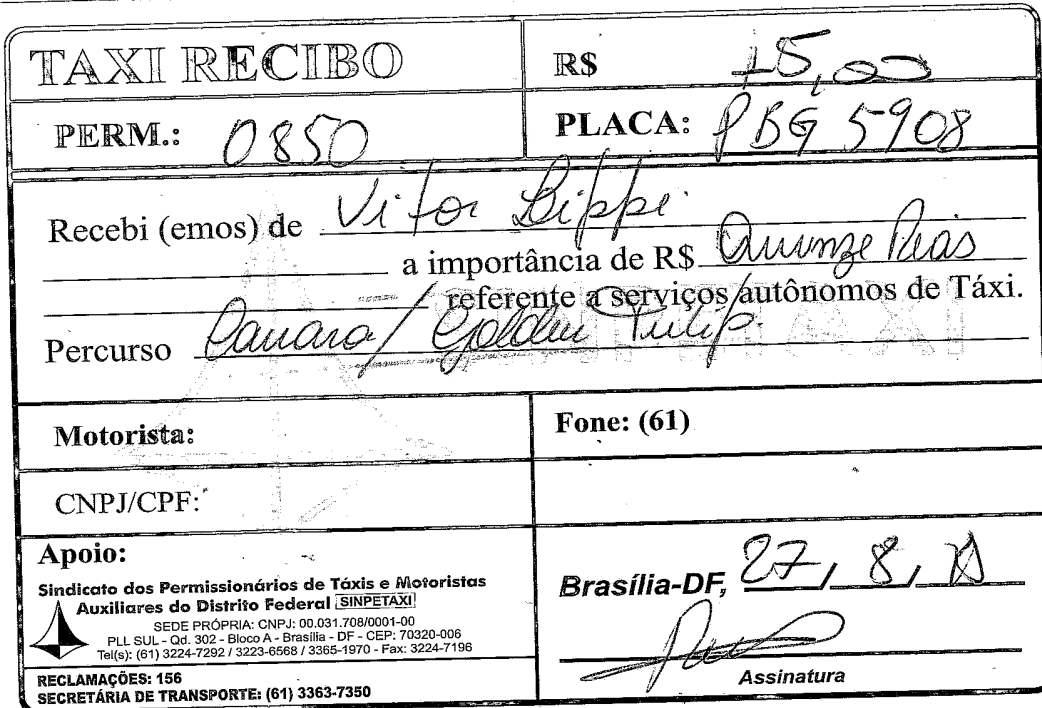 TAXI RECIBO
R$ 15,00
PERM.: 0850
PLACA: PBG 5908
Recebi (emos) de Vitor Lippi
a importância de R$ Quinze Reais
referente a serviços autônomos de Táxi.
Percurso Camara / Golden Tulip.
Motorista:
Fone: (61)
CNPJ/CPF:
Apoio:
Sindicato dos Permissionários de Táxis e Motoristas
Auxiliares do Distrito Federal SINPETAXI
SEDE PRÓPRIA: CNPJ: 00.031.708/0001-00
PLL SUL - Qd. 302 - Bloco A - Brasília - DF - CEP: 70320-006
Tel(s): (61) 3224-7292 / 3223-6568 / 3365-1970 - Fax: 3224-7196
RECLAMAÇÕES: 156
SECRETÁRIA DE TRANSPORTE: (61) 3363-7350
Brasília-DF, 27, 8,
Assinatura